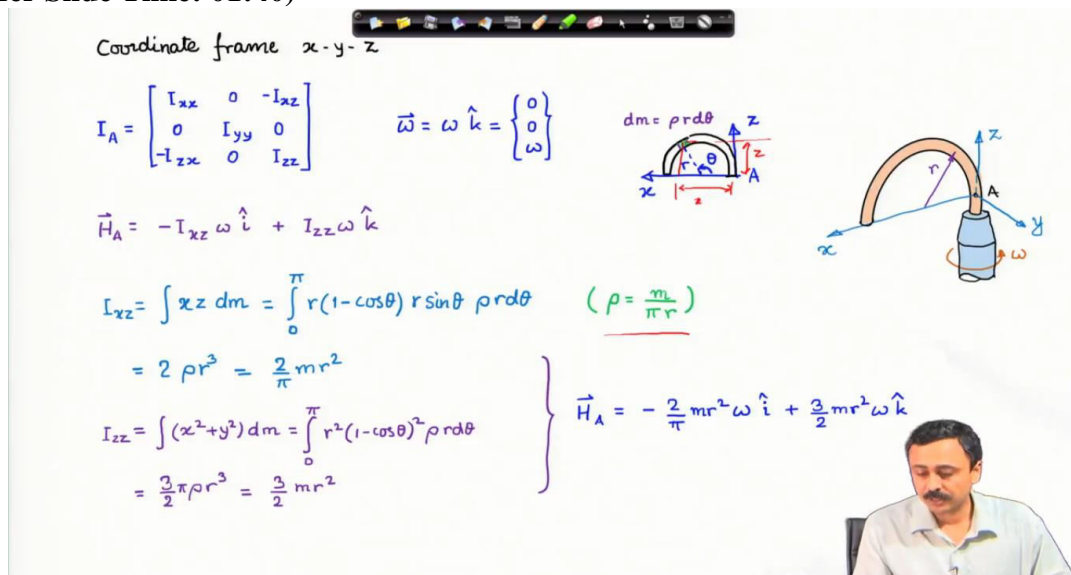 Coordinate frame x-y-z
I_A = [ I_xx 0 -I_xz
0 I_yy 0
-I_zx 0 I_zz ]
ω⃗ = ω k̂ = { 0
0
ω }
dm = ρ r dθ
z
z
r θ
x
A
x
z
r
A
y
x
ω
H⃗_A = -I_xz ω î + I_zz ω k̂
I_xz = ∫ x z dm = ∫_0^π r(1-cosθ) r sinθ ρ r dθ (ρ = m/πr)
= 2 ρr³ = 2/π mr²
I_zz = ∫ (x²+y²) dm = ∫_0^π r²(1-cosθ)² ρ r dθ
= 3/2 πρr³ = 3/2 mr²
H⃗_A = - 2/π mr² ω î + 3/2 mr² ω k̂